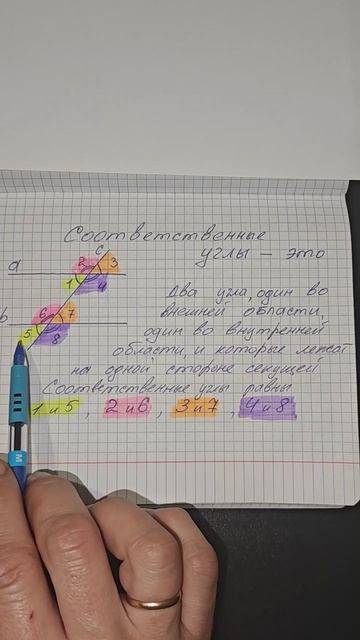 Соответственные
углы – это
c
a
2 3
1 4
Два угла, один во
внешней области,
b
6 7
5 8
один во внутренней
области, и которые лежат
на одной стороне секущей
Соответственные углы равны.
1 и 5, 2 и 6, 3 и 7, 4 и 8
M